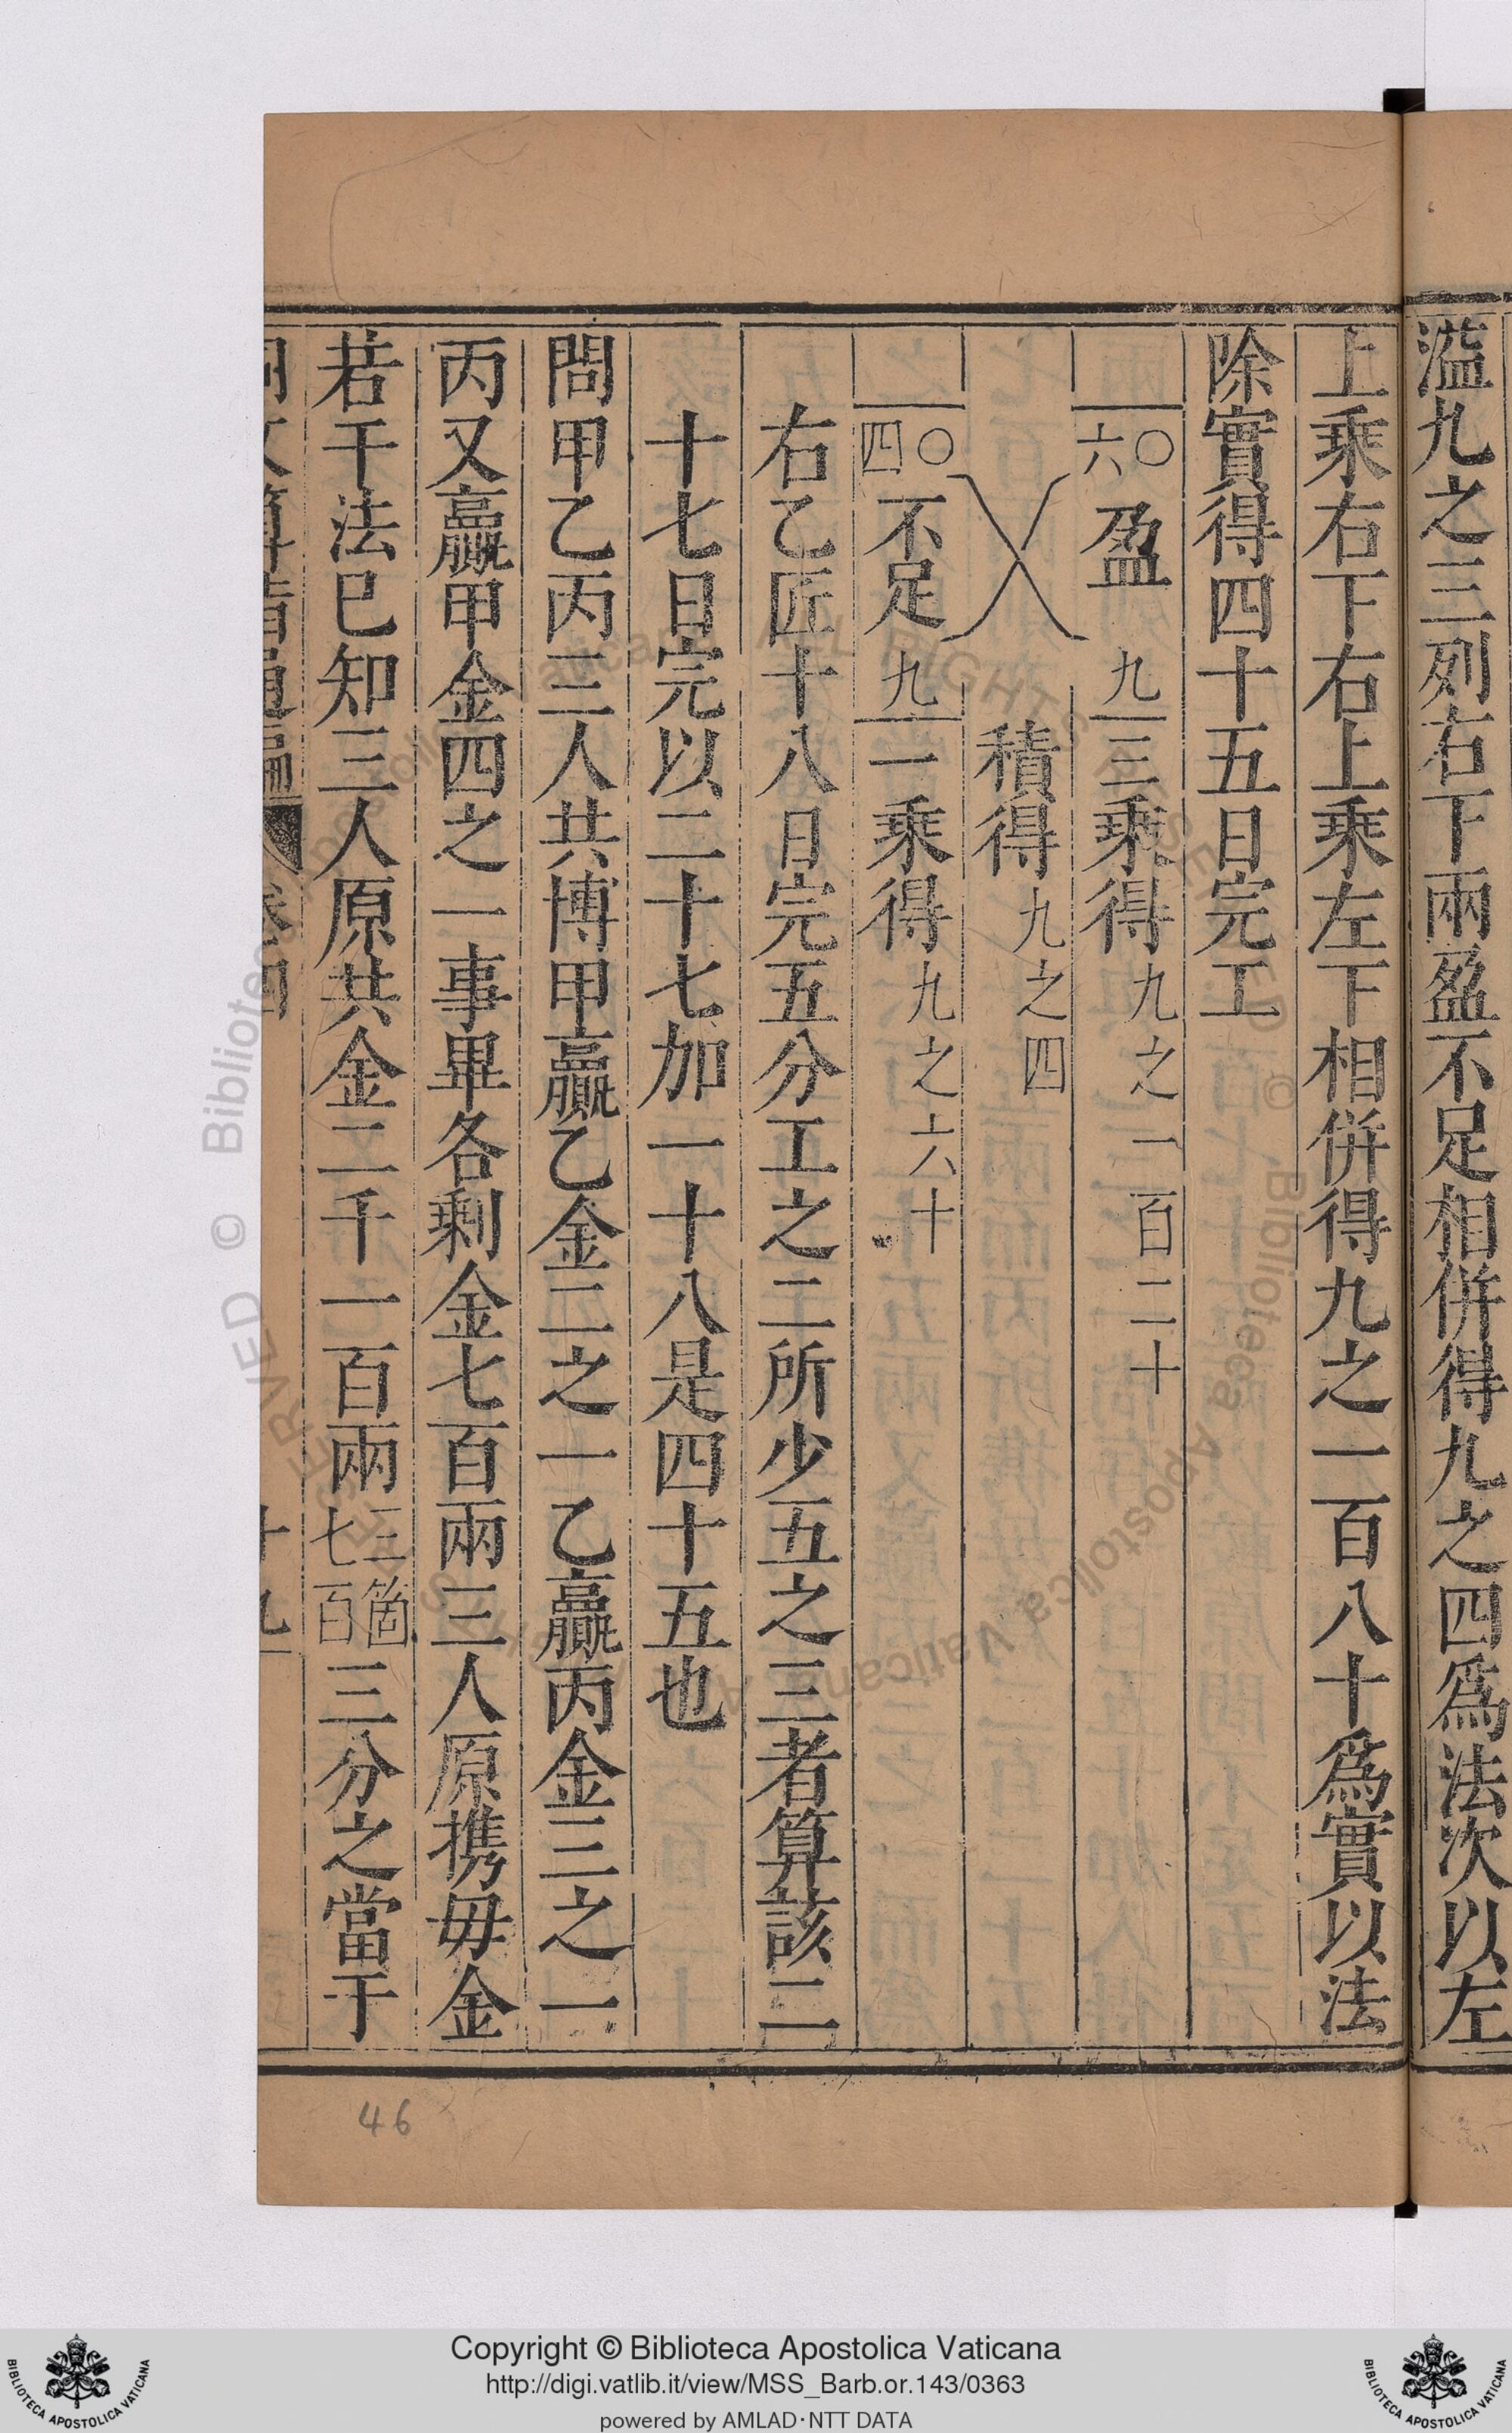 溢九之三列右下兩盈不足相併得九之四爲法次以左
上乘右下右上乘左下相併得九之一百八十爲實以法
除實得四十五日完工
六〇 盈 九 三乘得九之一百二十
積得九之四
四〇 不足 九 一乘得九之六十
右乙匠十八日完五分工之二所少五之三者算該二
十七日完以二十七加一十八是四十五也
問甲乙丙三人共博甲贏乙金二之一乙贏丙金三之一
丙又贏甲金四之一事畢各剩金七百兩三人原携毋金
若干法巳知三人原共金二千一百兩三箇七百三分之當于
同文算指通編 卷四 十九
46
© Biblioteca Apostolica Vaticana ALL RIGHTS RESERVED
Copyright © Biblioteca Apostolica Vaticana
http://digi.vatlib.it/view/MSS_Barb.or.143/0363
powered by AMLAD·NTT DATA
BIBLIOTECA APOSTOLICA VATICANA
BIBLIOTECA APOSTOLICA VATICANA